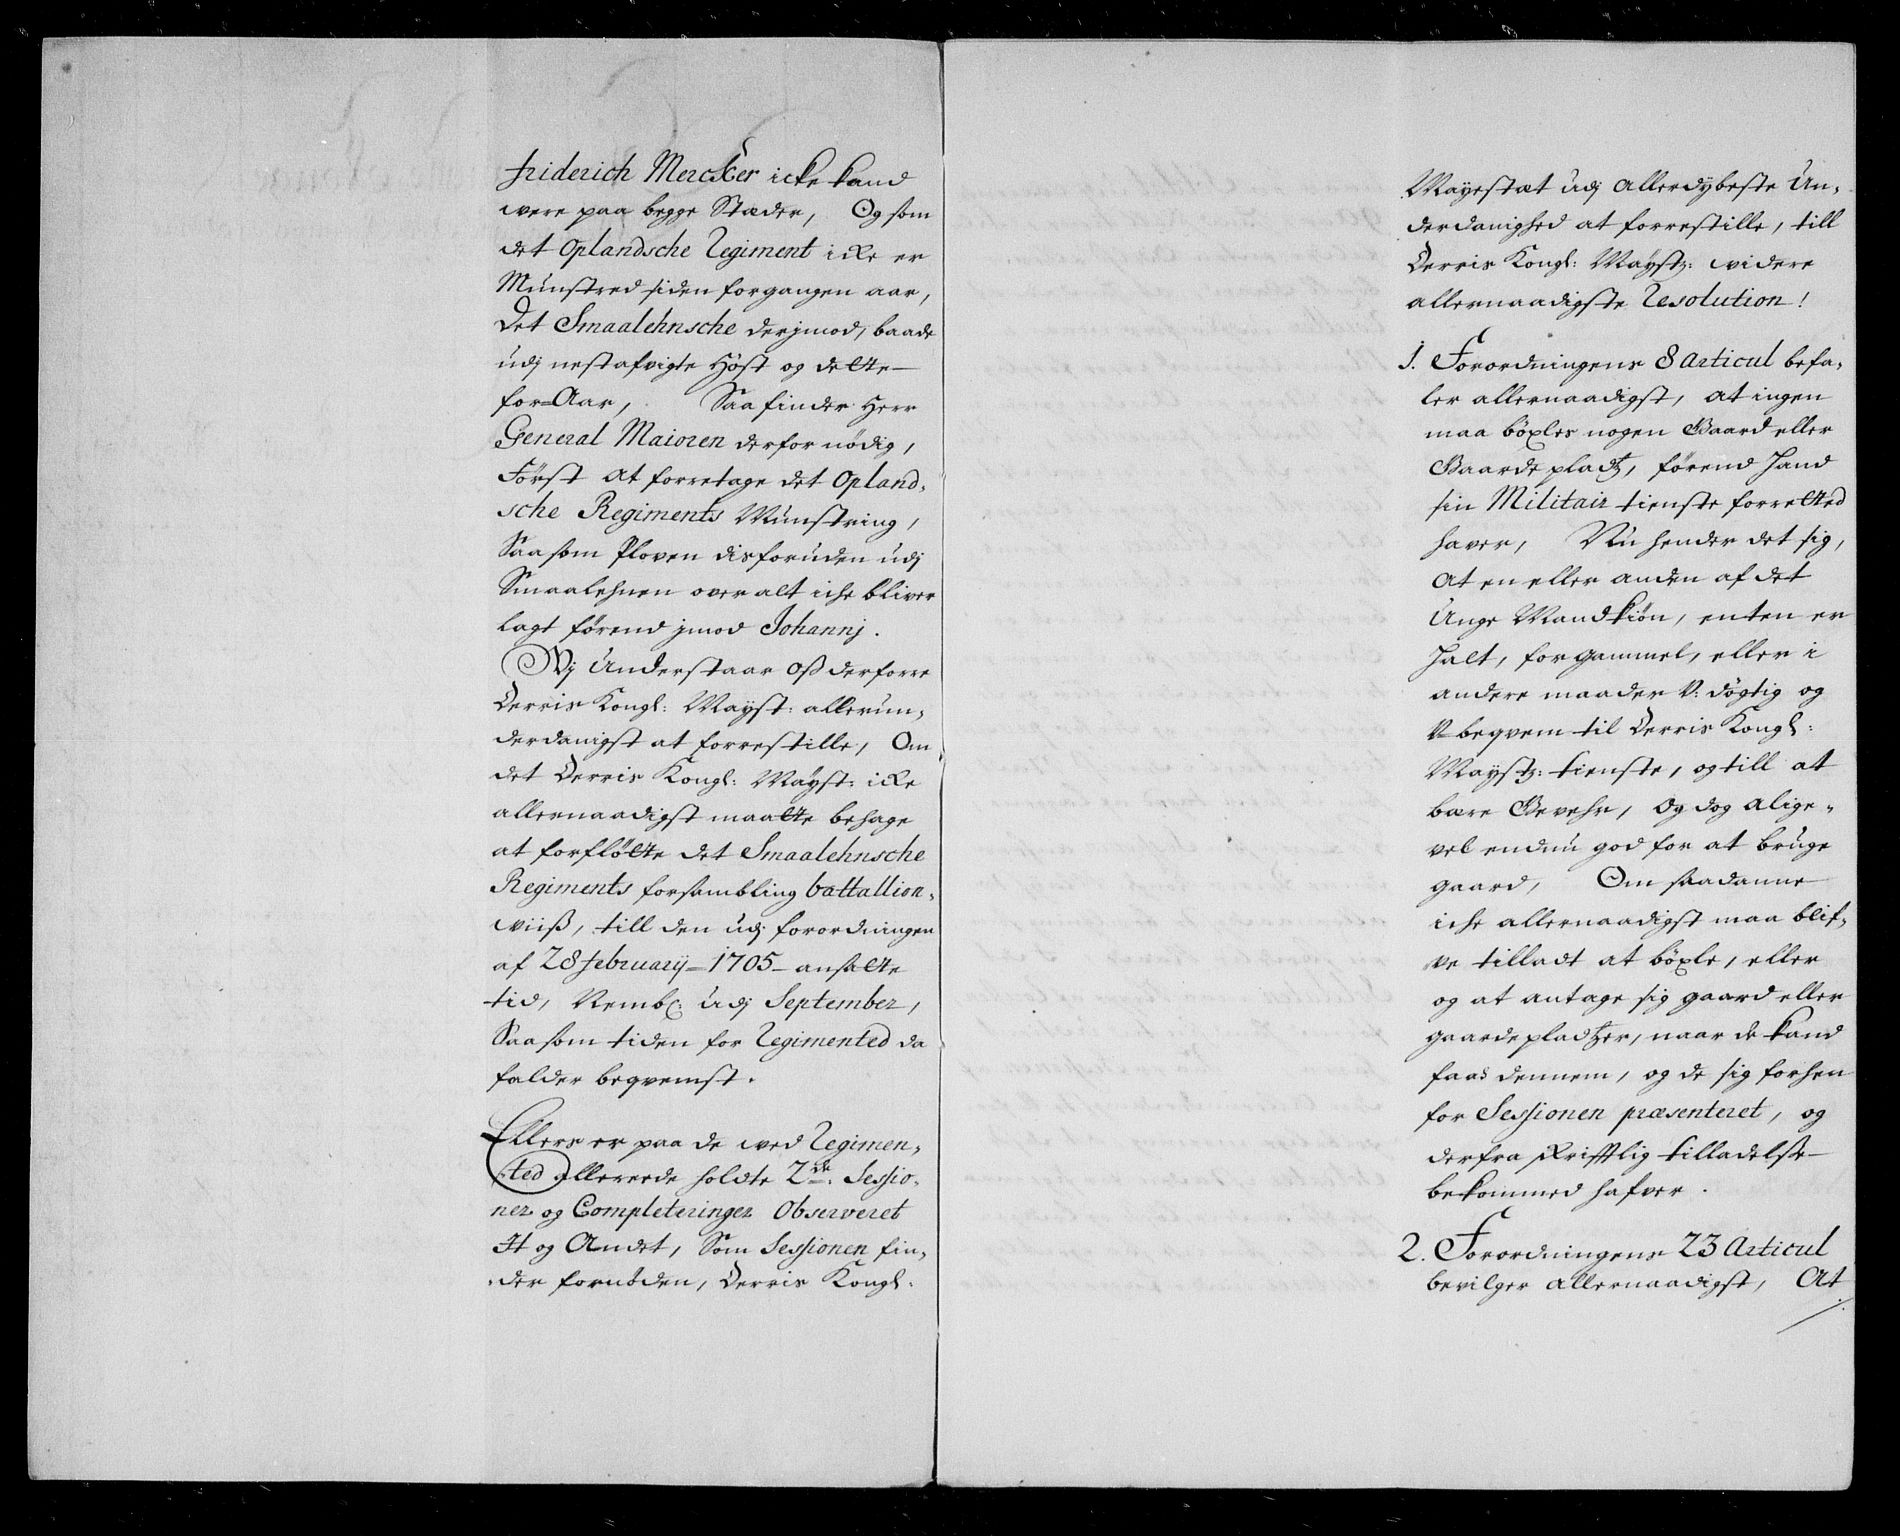 friderich Mercker icke kand
were paa begge Stæder, Og som
det Oplandsche Regiment icke er
Münstred siden forgangen aar,
Det Smaalehnsche derjmod, baade
udj nestafvigte Höst og dette
for=Aar, Saa finder Herr
General Maioren derfor nödig,
Först at forretage det Opland,
sche Regiments Münstring,
Saasom Ploven disforuden udj
Smaalehnen over alt iche bliver
lagt förend jmod Johannj.
Vj Understaar Oss derforre
Derris Kongl: Mayst: allerun,
derdanigst at forrestille, Om
det Derris Kongl: Mayst: icke
allernaadigst maatte behage
at forfløtte det Smaalehnsche
Regiments forsambling battallion,
wiiß, till den udj forordningen
af 28 february=1705- ansatte
tid, Nembl: udj September,
Saasom tiden for Regimented da
falder beqvemst.
Ellers er paa de wed Regimen,
ted allereede holdte 2de: Sessio,
ner og Completeringer Observeret
It og Andet, Som Sessionen fin,
der fornöden, Derris Kongl:
Mayestæt udj allerdybeste Un,
derdanighed at forrestille, till
Derris Kongl: Maystz: widere
allernaadigste Resolution!
1. Forordningens 8 Articul befa,
ler allernaadigst, at ingen
maa böxles nogen Gaard eller
Gaarde pladtz, förend hand
sin Militair tienste forretted
haver, Nu hender det sig,
At en eller anden af det
Unge Mandkiön, enten er
halt, for gammel, eller i
andere maader V: dögtig og
V=beqvem til Derris Kongl:
Maystz: tienste, og till at
bære Gevehr, Og dog alige,
vel endnu god for at bruge
gaard, Om saadanne
iche allernaadigst maa blif,
ve tilladt at böxle, eller
og at antage sig gaard eller
gaardepladtzer, naar de kand
faas dennem, og de sig forhen
for Sessionen præsenteret, og
derfra skrifftlig tilladelse
bekommed hafver.
2. Forordningens 23 Articul
bevilger allernaadigst, At